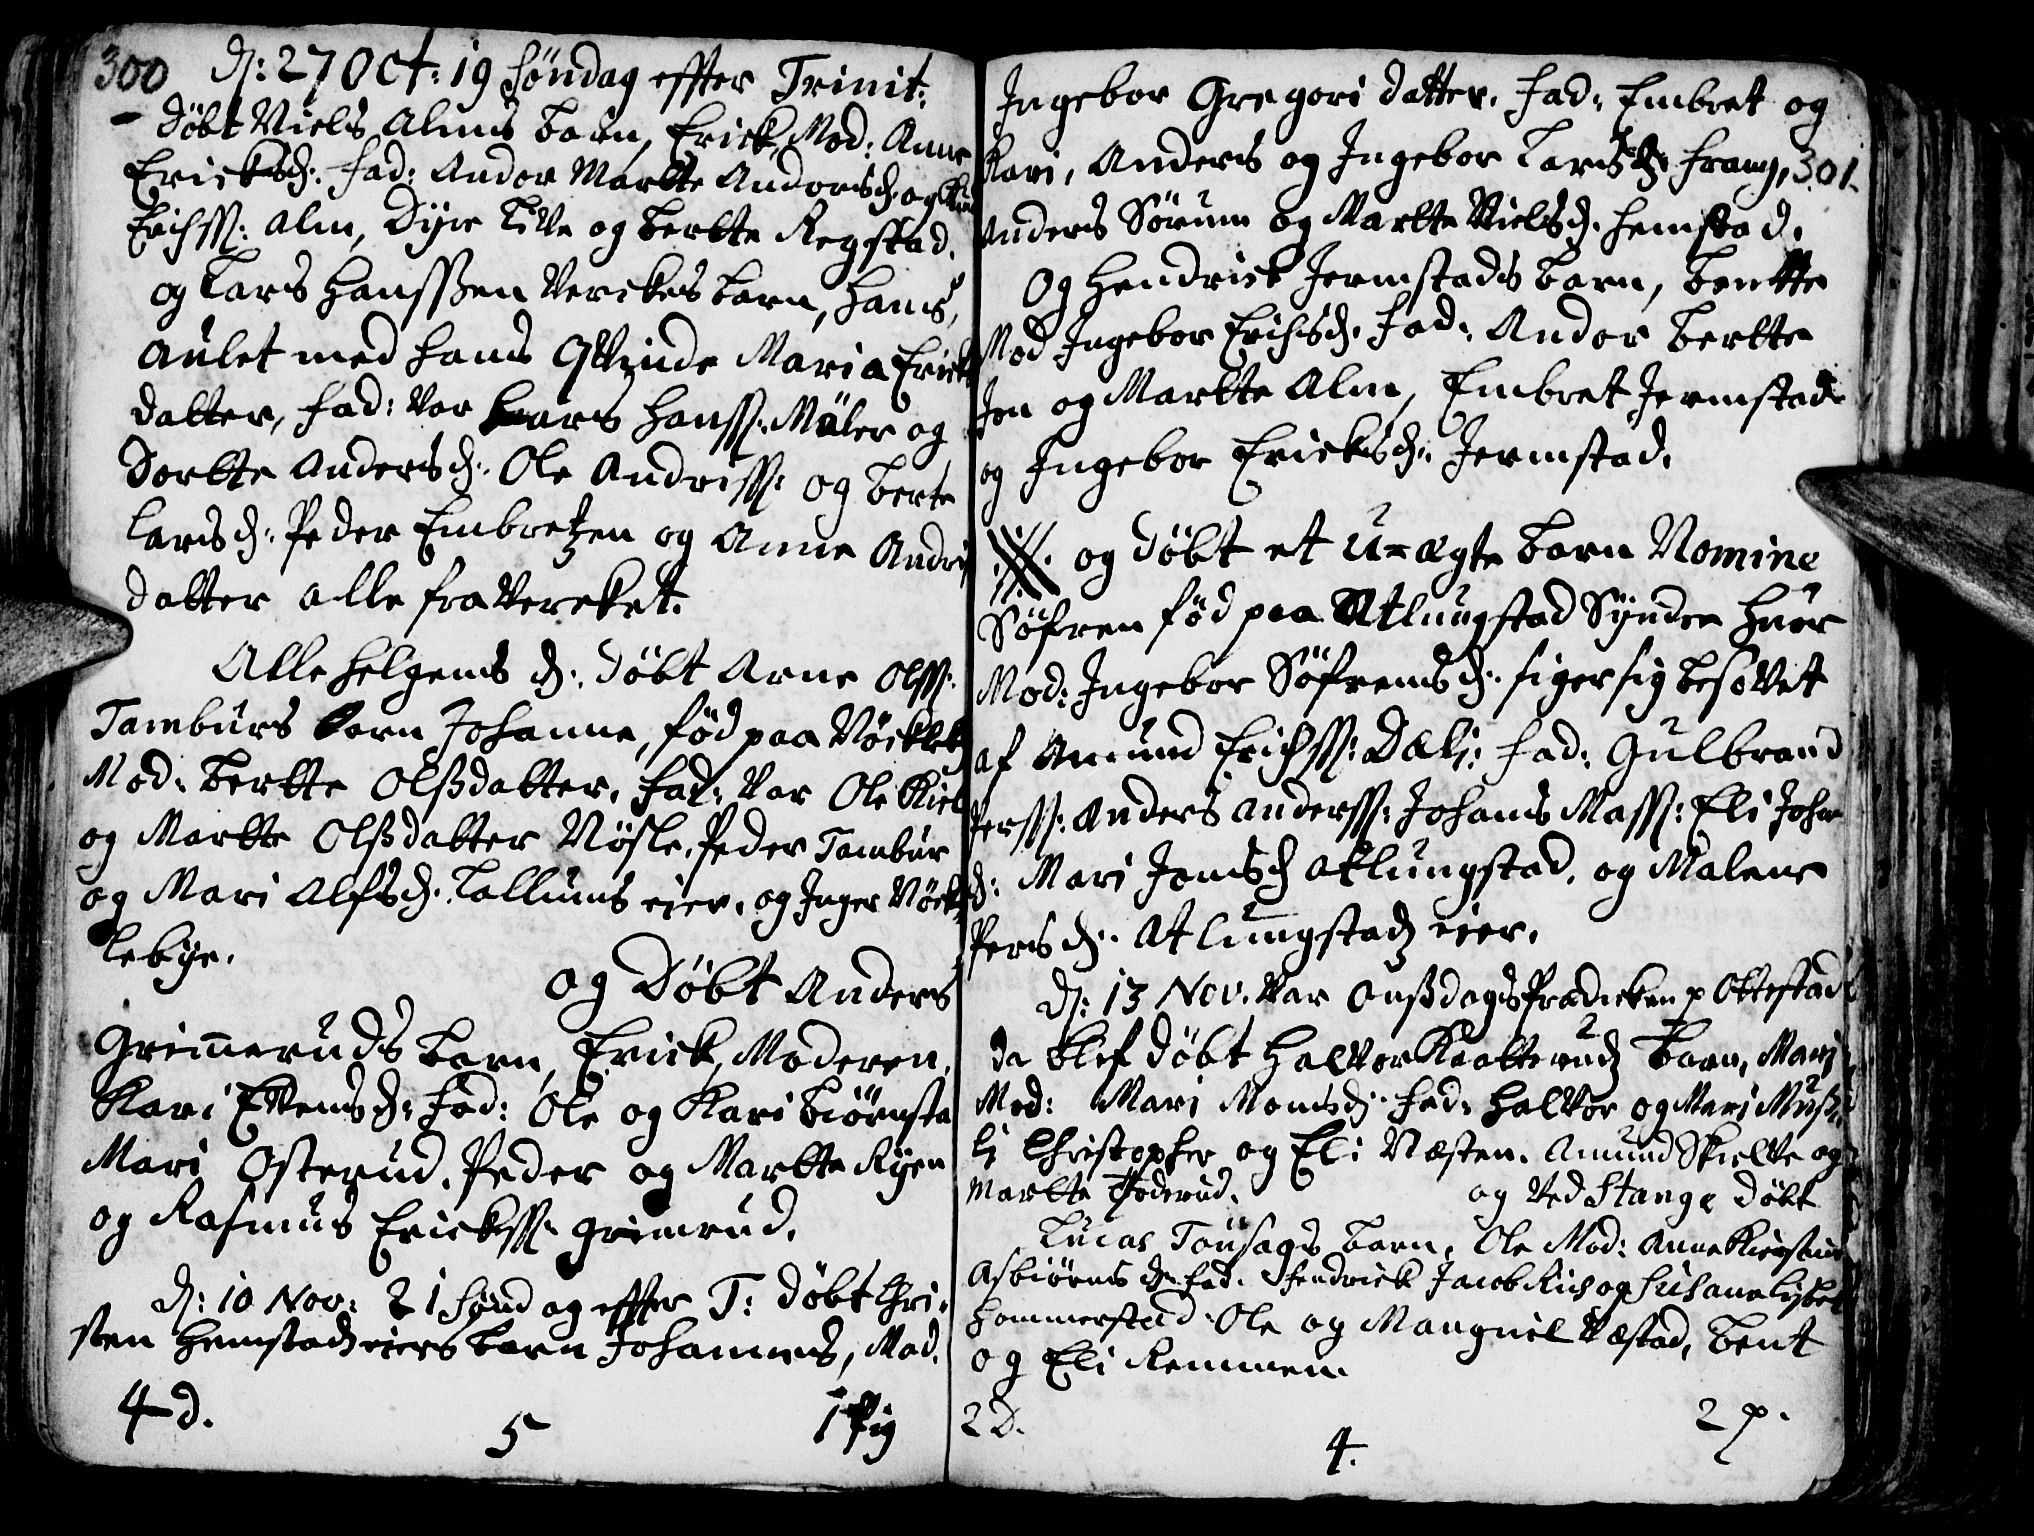 300 D: 27 Oct: 19 Søndag effter Trinit:
Døbt Niels Alms barn, Erick, Mod: Anne
Ericksd: fad: Andor Marthe Andorsd: og
Erichss: Alm, Dyre Live og berthe Rogstad.
og Lars Hanssen Verckes barn, Hans,
Aulet med hans Qvinde Maria Erichs
datter, fad: var Lars Hanss: Müler og
Dorthe Andersd: Ole Andriss: og berte
Larsd: Peder Embretzen og Anne Andris
datter alle fra Vercket.
Alle helgens d: døbt Arne Olss:
Tamburs barn Johanne, fød paa Nöckleb
Mod: berthe Olsdatter, fad: var Ole Kiel
og Marthe Olsdatter Nøsle, Peder Tambur
og Mari Alfsd: Lallums eier, og Inger Nöck
lebye.
og Døbt Anders
Grimeruds barn, Erick, Moderen,
Kari Evensd: fad: Ole og Kari biørnsta
Mari Osterud, Peder og Marthe Ryen
og Rasmus Ericks: grimrud.
D: 10 Nov: 21 Sønd ag effter T: døbt Chri-
sten Hemstad eiers barn Johannes, Mod.
4 d.
5
1 Pig
Ingebor Gregori datter, fad: Embret og
Kari, Anders og Ingebor Larsd: frang,
301.
Anders Sørum og Marthe Nielsd: Hemstad.
Og Hendrick Jermstads barn, benthe
Mod Ingebor Erichsd: fad: Andor berthe
Jon og Marthe Alm, Embret Jermstad
og Ingebor Ericksd: Jermstad.
og døbt et U=ægte barn Nomine
Søfren fød paa Atlungstad Syndre Huor
Mod: Ingebor Søfrensd: siger sig besovet
af Amund Erichss: Dæli: fad: Gulbrand
Perss: Anders Anderss: Johans Mass: Eli Johan
d: Mari Jonsd Atlungstad, og Malene
Persd: Atlungstad eier.
D: 13 Nov. var Onsdags Prædicken p Ottestad
da blef døbt Halvor Kaatterud barn, Mari
Mod: Mari Monsd: fad: Halvor og Mari Mus
li Christopher og Eli Næsten. Amund Skielve og
Marthe Foderud.
og ved Stange døbt
Lucas Tousags barn, Ole Mod: Anne Kierstine
Asbiørns d: fad: Hendrick Jacob Riis og Susanne Lisbet
Hommerstad Ole og Mangnil Væstad, bent
og Eli Remmen.
2 D.
4.
2 p.